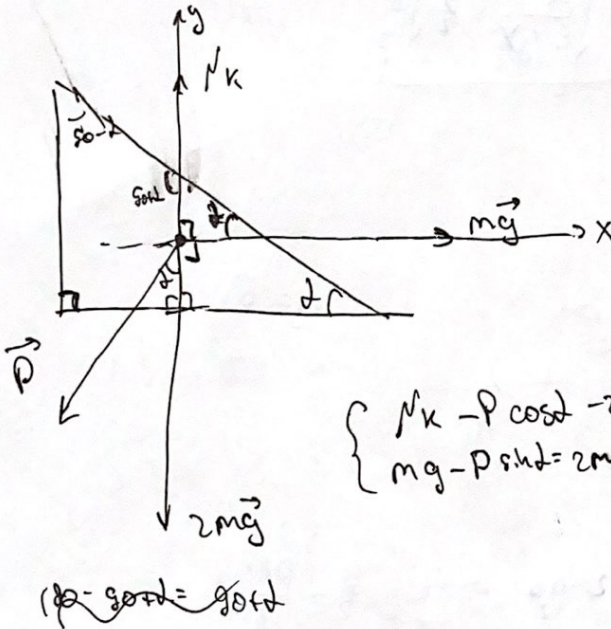 y
N_K
90-α
90+α
α
mg
x
α
α
P
{ N_K - P cosα -
mg - P sinα = 2m
2mg
180-90+α= 90+α